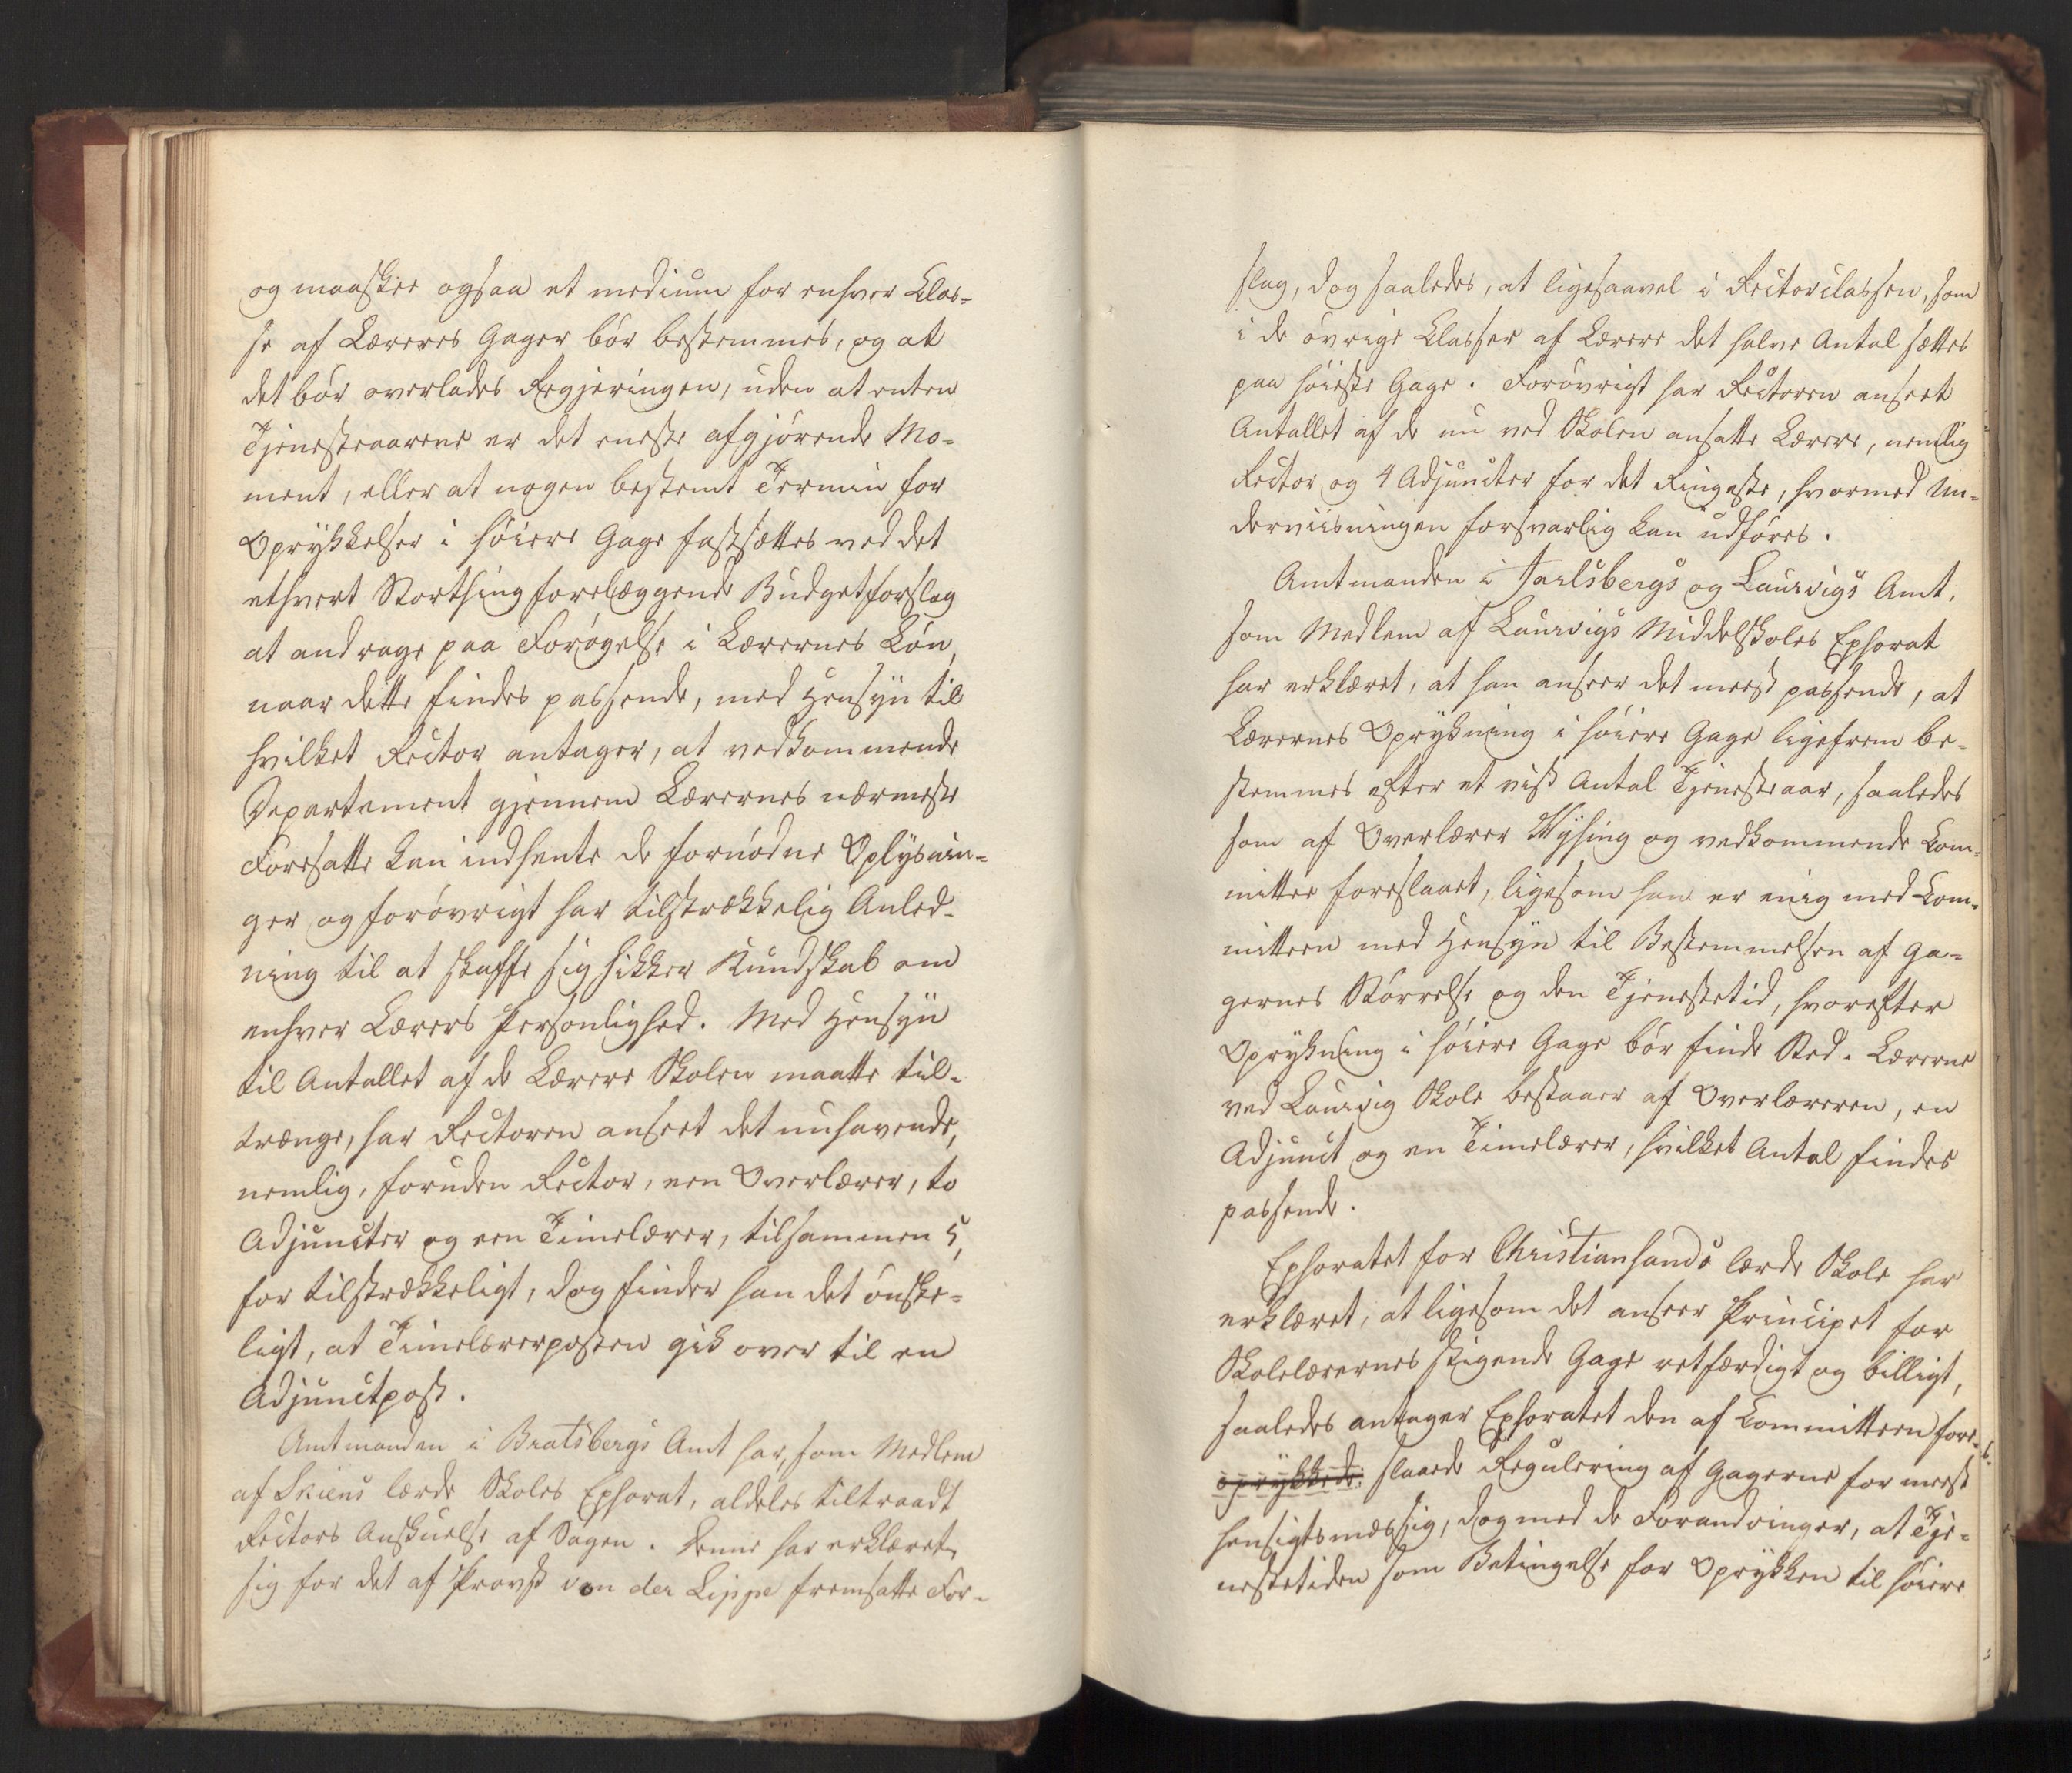 og maaskee ogsaa et medium for enhver Clas-
se af Læreres Gager bör bestemmes, og at
det bör overlades Regjeringen, uden at enten
Tjenesteaarene er det eneste afgjörende Mo-
ment, eller at nogen bestemt Termin for
Oprykkelser i höiere Gage fastsættes ved det
ethvert Storthing forelæggende Budgetforslag
at andrage paa Forögelse i Lærernes Lön,
naar dette findes passende, med Hensyn til
hvilket Rector antager, at vedkommende
Departement gjennem Lærernes nærmeste
Foresatte kan indhente de fornödne Oplysnin-
ger og forövrigt har tilstrækkelig Anled-
ning til at skaffe sig sikker Kundskab om
enhver Lærers Personlighed. Med Hensyn
til Antallet af de Lærere Skolen maatte til-
trænge, har Rectoren anseet det nuhavende,
nemlig, foruden Rector, een Overlærer, to
Adjuncter og een Timelærer, tilsammen 5,
for tilstrækkeligt, dog finder han det önske-
ligt, at Timelærerposten gik over til en
Adjunctpost.
Amtmanden i Bratsbergs Amt har, som Medlem
af Skiens lærde Skoles Ephorat, aldeles tiltraadt
Rectors Anskuelse af Sagen. Denne har erklæret
sig for det af Provst von der Lippe fremsatte For-
slag, dog saaledes, at ligesaavel i Rectorclassen, som
i de övrige Classer af Lærere det halve Antal sættes
paa höieste Gage. Forövrigt har Rectoren anseet
Antallet af de nu ved Skolen ansatte Lærere, nemlig
Rector og 4 Adjuncter for det Ringeste, hvormed Un-
derviisningen forsvarlig kan udföres.
Amtmanden i Jarlsbergs og Laurvigs Amt,
som Medlem af Laurvigs Middelskoles Ephorat
har erklæret, at han anseer det meest passende, at
Lærernes Oprykning i höiere Gage ligefrem be-
stemmes efter et vist Antal Tjenesteaar, saaledes
som af Overlærer Thysing og vedkommende Com-
mittee foreslaaet, ligesom han er enig med Com-
mitteen med Hensyn til Bestemmelsen af Ga-
gernes Störrelse og den Tjenestetid, hvorefter
Oprykning i höiere Gage bör finde Sted. Lærerne
ved Laurvig Skole bestaaer af Overlæreren, en
Adjunct og en Timelærer, hvilket Antal findes
passende.
Ephoratet for Christiansands lærde Skole har
erklæret, at ligesom det anseer Principet for
Skolelærernes stigende Gage retfærdigt og billigt,
saaledes antager Ephoratet den af Committeen fore-
oprykkede slaaede Regulering af Gagerne for meest
hensigtsmæssig, dog med de Forandringer, at Tje-
nestetiden som Betingelse for Oprykken til höiere